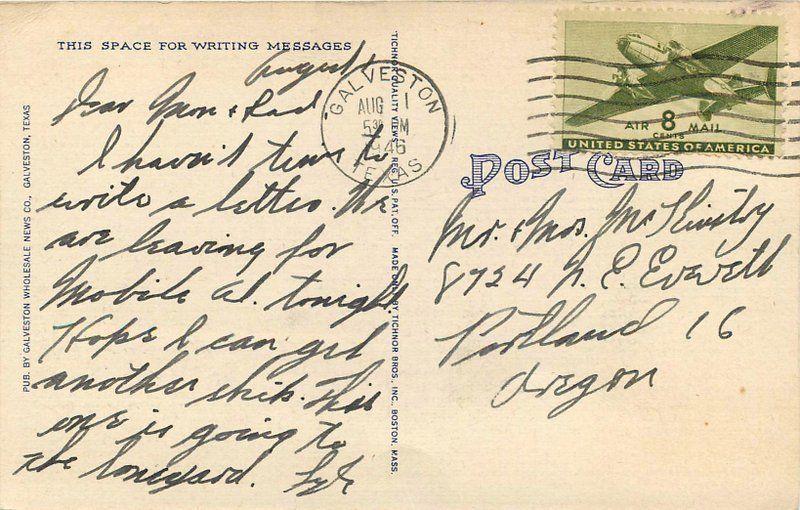 THIS SPACE FOR WRITING MESSAGES
August 1
Dear Mom & Dad
I haven't time to
write a letter. We
are leaving for
Mobile Al. tonight.
Hope I can get
another ship. This
one is going to
the boneyard.
PUB. BY GALVESTON WHOLESALE NEWS CO., GALVESTON, TEXAS
"TICHNOR QUALITY VIEWS," REG. U.S. PAT. OFF. MADE ONLY BY TICHNOR BROS., INC., BOSTON, MASS.
GALVESTON
AUG 1
530 PM
1946
TEXAS
AIR 8 MAIL
CENTS
UNITED STATES OF AMERICA
POST CARD
Mr. & Mrs.
8724 N. E. Everett
Portland 16
Oregon